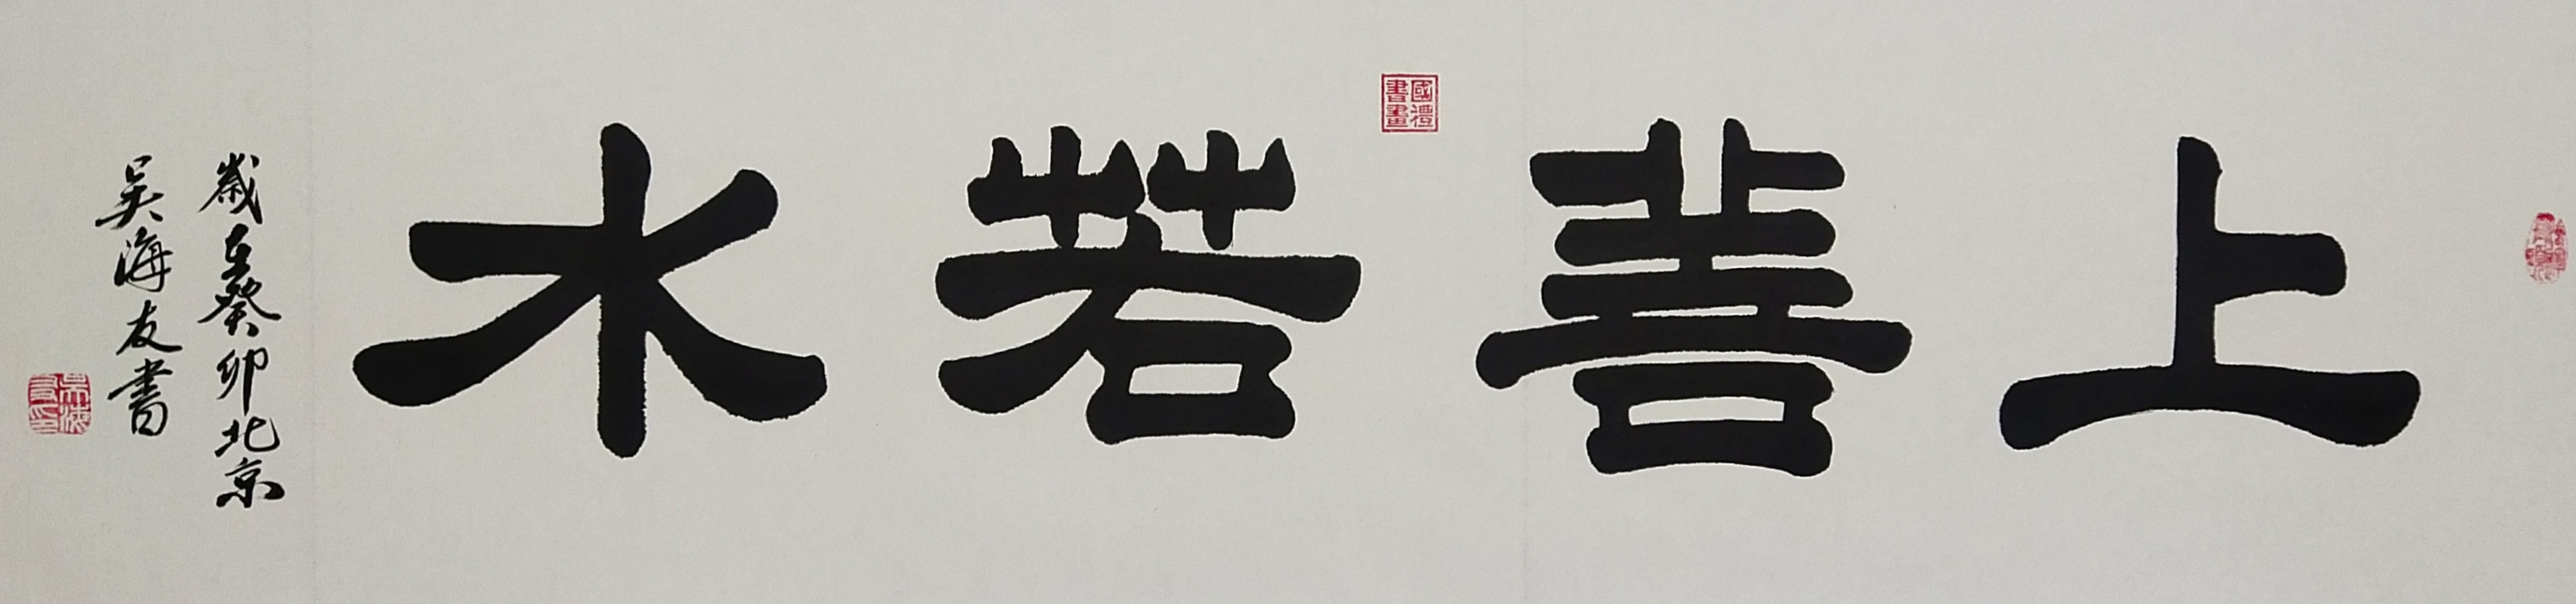 上善若水
歲在癸卯北京
吳海友書
國禮書畫